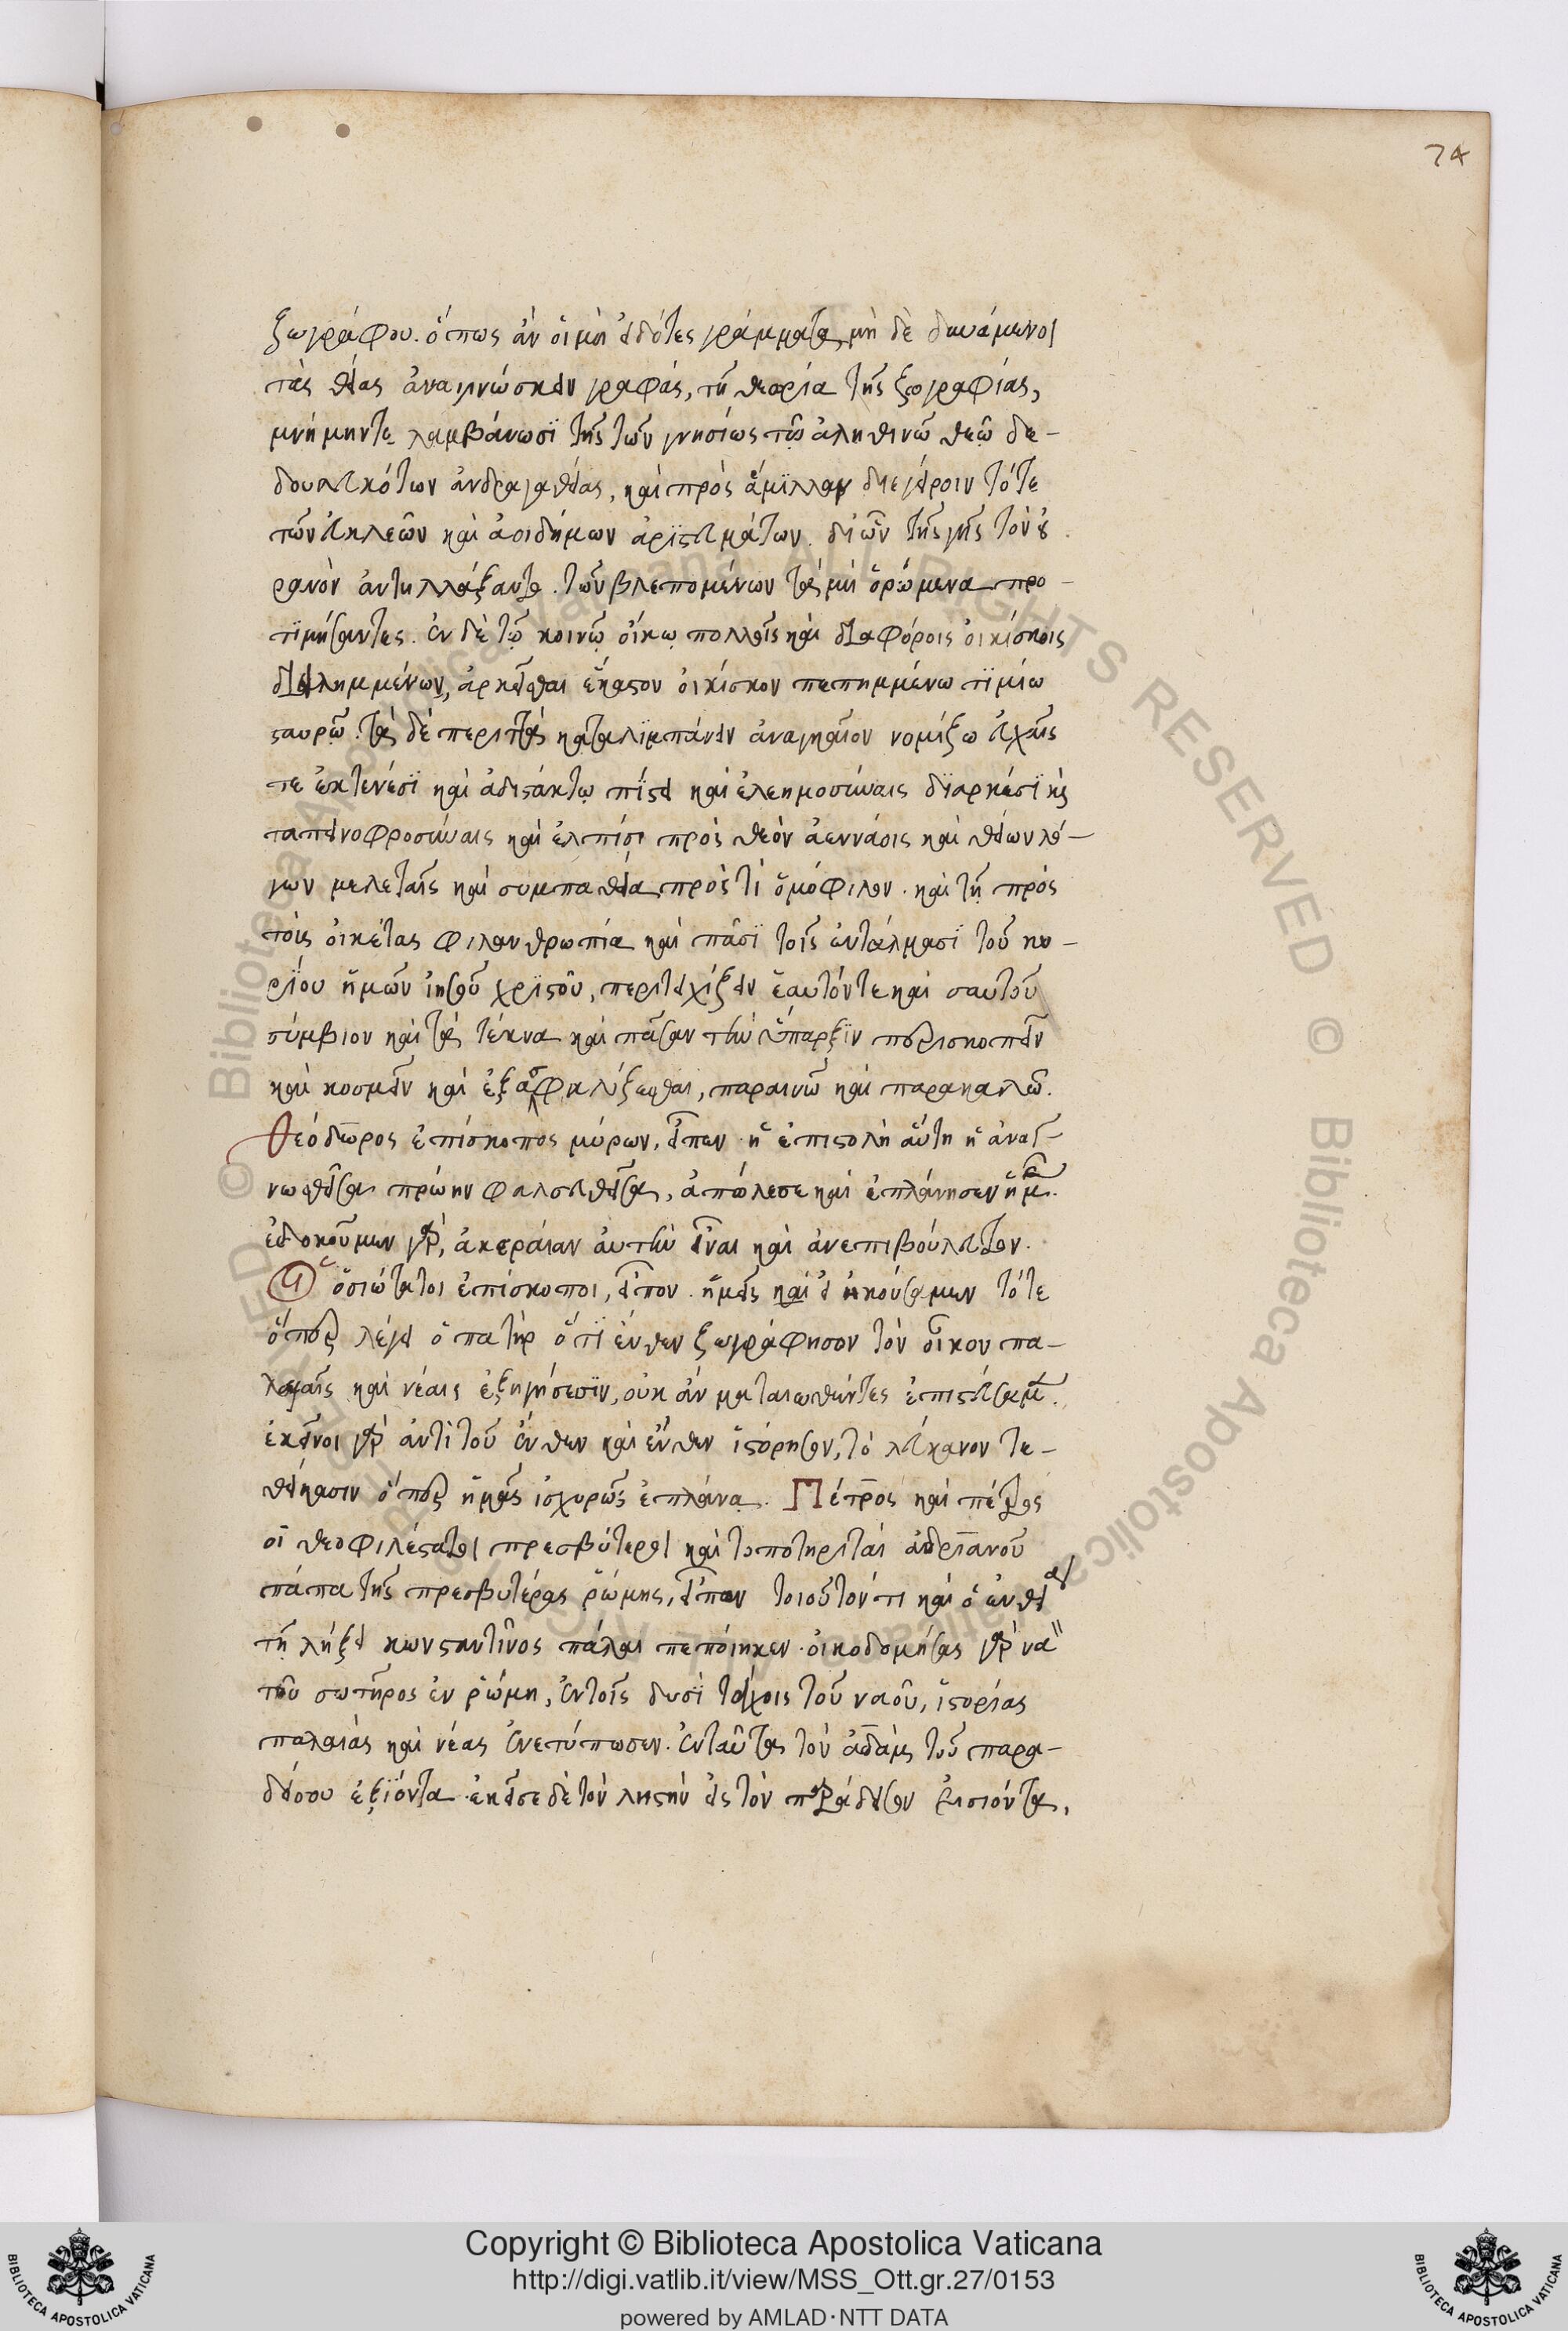 74
ζωγράφου. ὅπως ἂν οἱ μὴ εἰδότες γράμματα, μὴ δὲ δυνάμενοι
τὰς θείας ἀναγινώσκειν γραφάς, τῇ θεορία τῆς ζωγραφίας,
μνήμην τε λαμβάνωσϊ τῆς τῶν γνησίως τῶ ἀληθινῶ θεῶ δε-
δουλευκότων ἀνδραγαθείας, καὶ πρὸς ἅμϊλλαν διεγείροιν τότε
τῶν εὐκλεῶν καὶ ἀοιδήμων ἀρϊστευμάτων. δι ὧν τῆς γῆς τὸν οὐ
ρανὸν ἀντηλλάξαντο. τῶν βλεπομένων τὰ μὴ ὁρώμενα προ-
τϊμήσαντες. ἐν δὲ τῷ κοινῷ οἴκῳ πολλοῖς καὶ διαφόροις οἰκίσκοις
διειλημμένων, ἀρκεῖσθαι ἕκαστον οἰκίσκον πεπημμένω τϊμίω
σταυρῶ. τὰ δὲ περιττὰ καταλϊμπάνειν ἀναγκαῖον νομίζω εὐχαῖς
τε ἐκτενέσϊ καὶ ἀδιστάκτῳ πίστει καὶ ἐλεημοσύναις δϊαρκέσϊ καὶ
ταπεινοφροσύναις καὶ ἐλπίσι πρὸς θεὸν ἀεννάοις καὶ θείων λό-
γων μελεταῖς καὶ συμπαθεία πρὸς τὶ ὁμόφιλον. καὶ τῇ πρὸς
τοὺς οἰκέτας φιλανθρωπία καὶ πᾶσϊ τοῖς ἐντάλμασϊ τοῦ κυ-
ρϊου ἡμῶν ἰησοῦ χρϊστοῦ, περιτειχίζειν ἑαυτόν τε καὶ σαυτοῦ
σύμβιον καὶ τὰ τέκνα καὶ πᾶσαν τὴν ὕπαρξϊν περισκοπεῖν
καὶ κοσμεῖν καὶ ἐξασφαλίζεσθαι, παραινῶ καὶ παρακαλῶ.
Θεόδωρος ἐπίσκοπος μύρων, εἶπεν· ἡ ἐπιστολὴ αὕτη ἡ ἀναγ-
νωσθεῖσα πρώην φαλσευθεῖσα, ἀπώλεσε καὶ ἐπλάνησεν ἡμᾶς.
ἐδοκοῦμεν γὰρ, ἀκεραίαν αὐτὴν εἶναι καὶ ἀνεπιβούλευτον.
Οἱ ὁσιώτατοι ἐπίσκοποι, εἶπον. ἡμεῖς καὶ εἰ ἠκούσαμεν τότε
ὅπερ λέγει ὁ πατὴρ ὅτϊ ἔνθεν ζωγράφησον τὸν οἶκον πα-
λαιαῖς καὶ νέαις ἐξηγήσεσϊν, οὐκ ἂν ματαιωθέντες ἐπιστεύσαμεν.
ἐκεῖνοι γὰρ ἀντὶ τοῦ ἔνθεν καὶ ἔνθεν ἱστόρησον, τὸ λεύκανον τε-
θείκασιν ὅπερ ἡμᾶς ἰσχυρῶς ἐπλάνα. Πέτρος καὶ πέτρος
οἱ θεοφιλέστατοι πρεσβύτεροι καὶ τοποτηριταὶ ἀδριανοῦ
πάπα τῆς πρεσβυτέρας ῥώμης, εἶπον τοιοῦτόν τι καὶ ὁ ἐν θεία
τῇ λήξει κωνσταντῖνος πάλαι πεποίηκεν· οἰκοδομήσας γὰρ να
τοῦ σωτῆρος ἐν ῥώμη, ἐν τοῖς δυσὶ τοίχοις τοῦ ναοῦ, ἱστορίας
παλαιὰς καὶ νέας ἐνετύπωσεν. ἐνταῦθα τὸν ἀδὰμ τοῦ παρα-
δείσου ἐξϊόντα· ἐκεῖσε δὲ τὸν ληστὴν εἰς τὸν παράδεισον εἰσιόντα.
© Biblioteca Apostolica Vaticana
ALL RIGHTS RESERVED
Copyright © Biblioteca Apostolica Vaticana
http://digi.vatlib.it/view/MSS_Ott.gr.27/0153
powered by AMLAD·NTT DATA
BIBLIOTECA APOSTOLICA VATICANA
BIBLIOTECA APOSTOLICA VATICANA